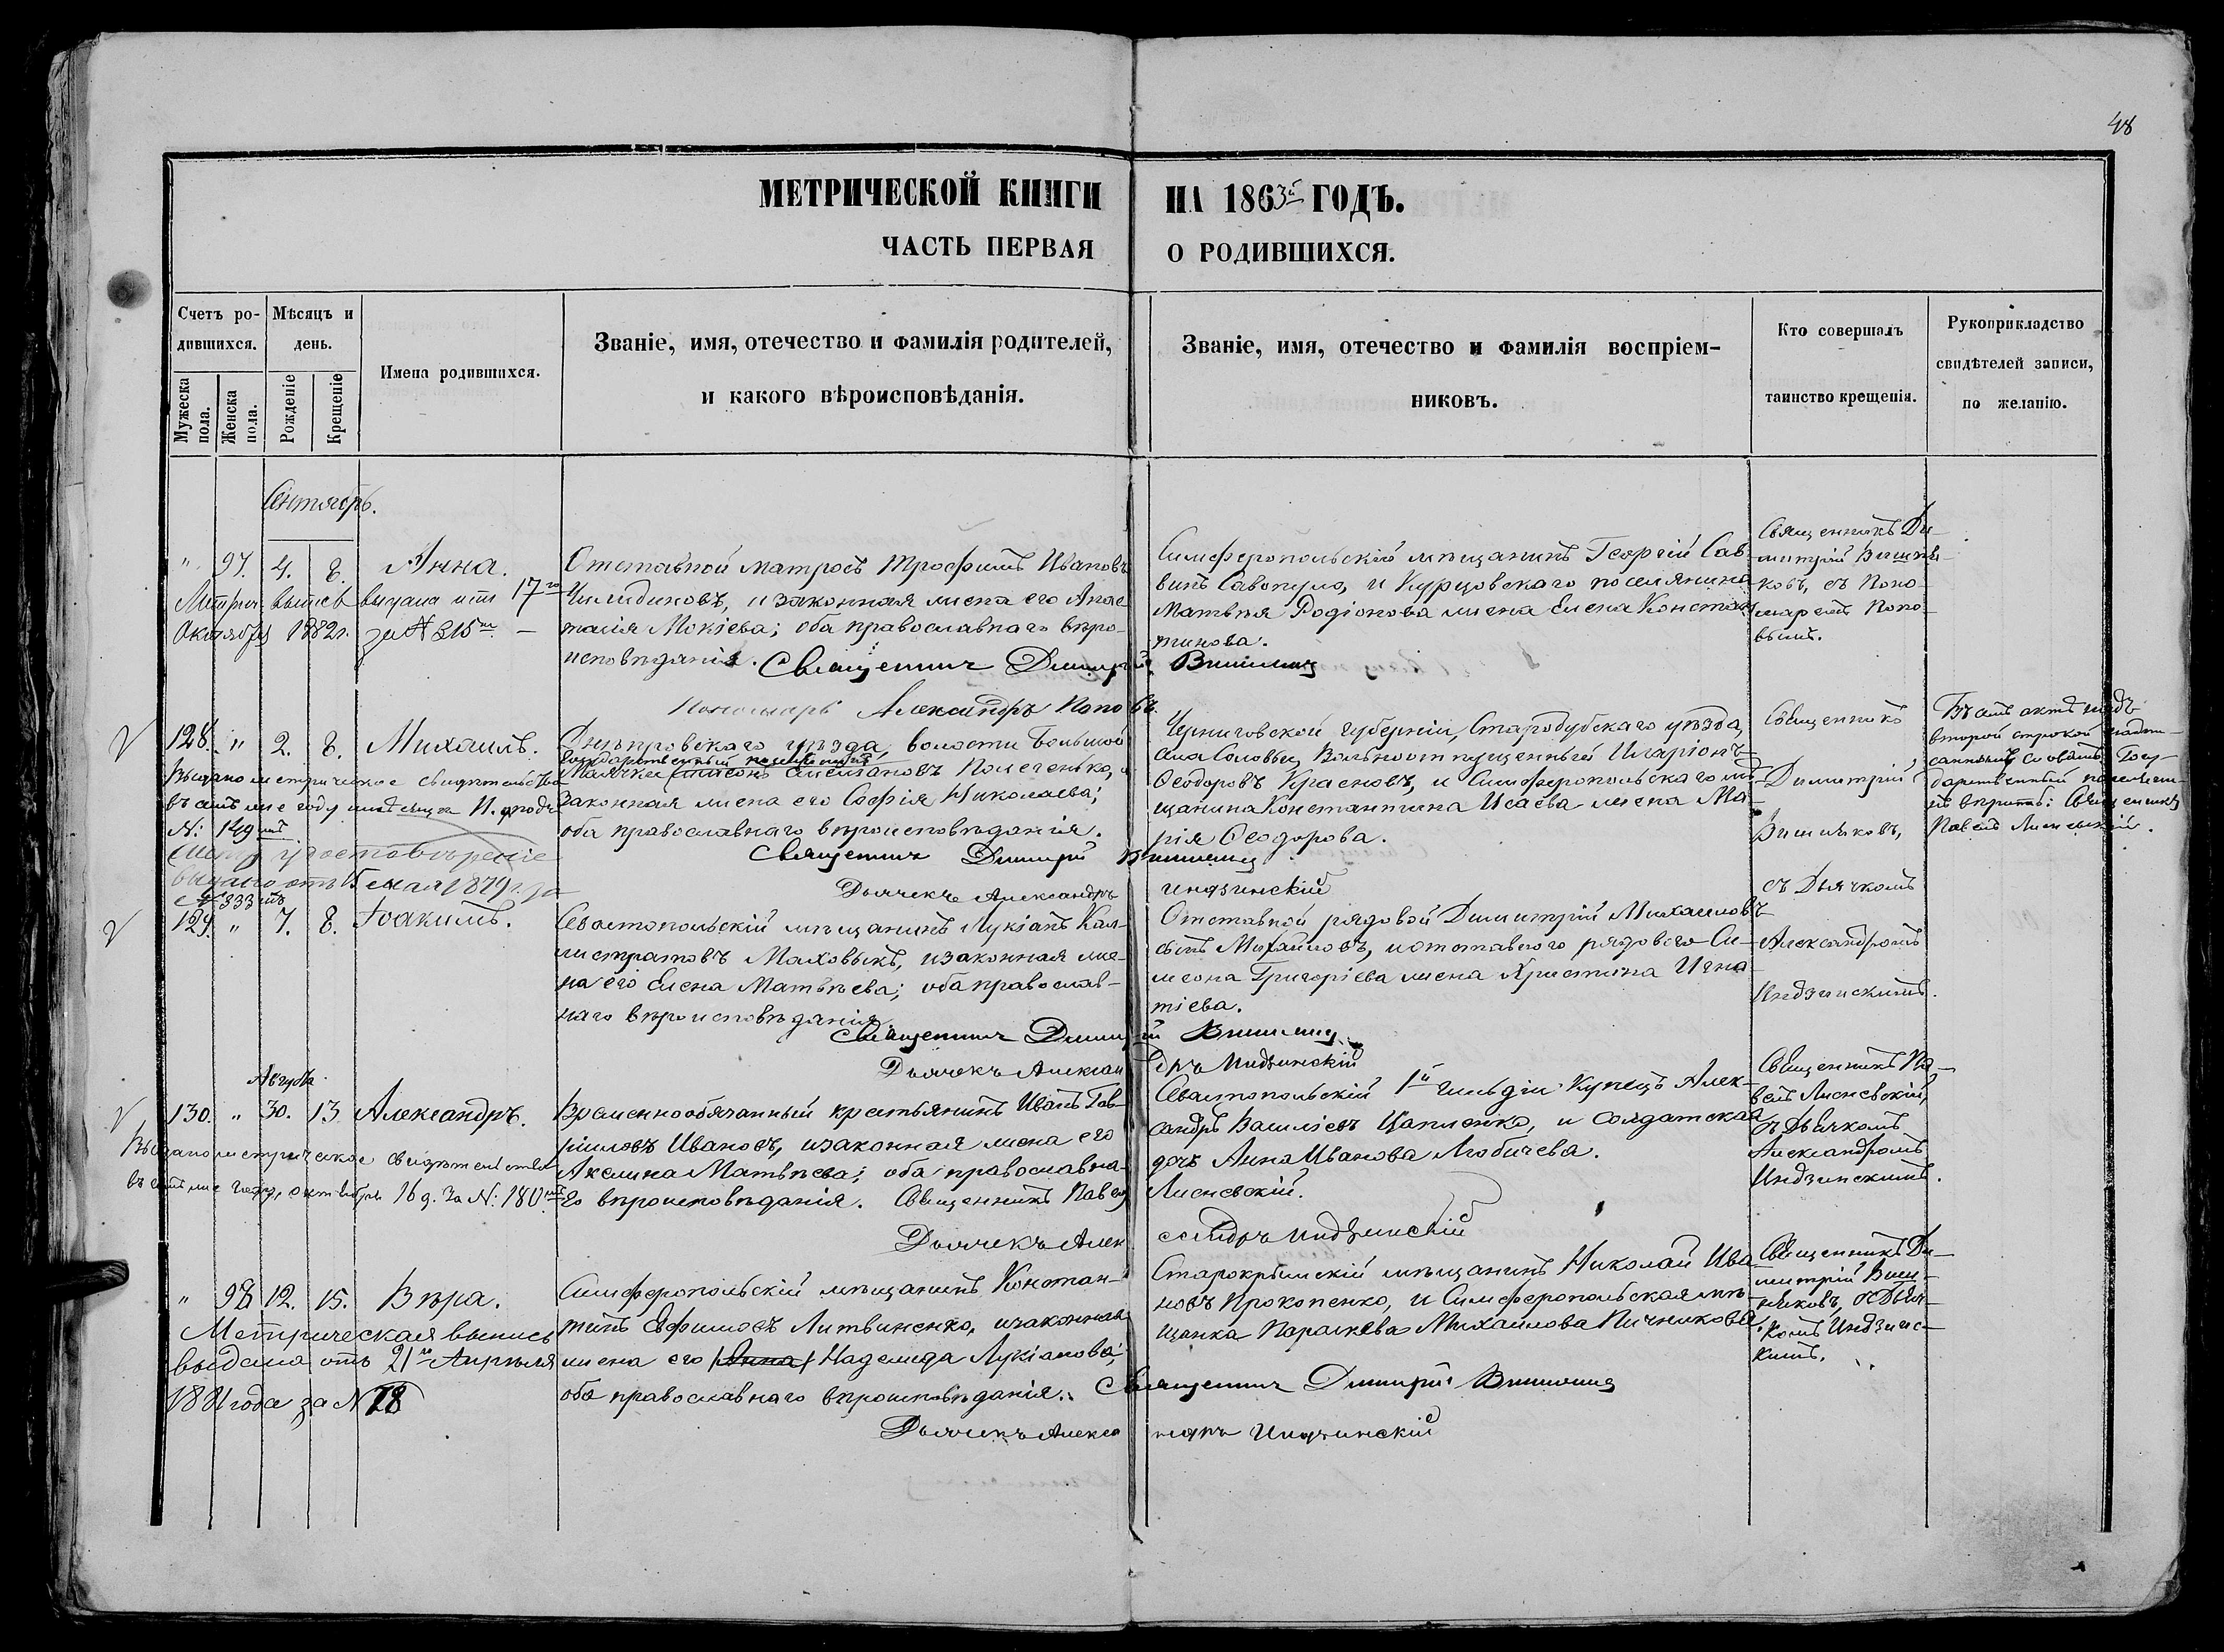 48
МЕТРИЧЕСКОЙ КНИГИ НА 1863й ГОДЪ.
ЧАСТЬ ПЕРВАЯ О РОДИВШИХСЯ.
Счетъ ро-
дившихся.
Мужеска пола.
Женска пола.
Мѣсяцъ и
день.
Рожденіе
Крещеніе
Имена родившихся.
Званіе, имя, отечество и фамилія родителей,
и какого вѣроисповѣданія.
Званіе, имя, отечество и фамилія воспріем-
никовъ.
Кто совершалъ
таинство крещенія.
Рукоприкладство
свидѣтелей записи,
по желанію.
Сентябрь.
" 97. 4. 8. Анна.
Метрич. выпись выдана отъ 17го
Октября 1882г. за № 315м —
Отставной матросъ Трофимъ Ивановъ
и законная жена его Анас-
тасія Мокіева; оба православнаго вѣро-
исповѣданія. Священникъ Димитрій Вишняковъ
Пономарь Александръ Поповъ.
Симферопольскій мѣщанинъ Георгій Сав-
винъ Савопуло, и Курцовскаго поселянина
Матвѣя Родіонова жена Елена Констан-
тинова.
Священникъ Ди-
митрій Вишня-
ковъ, съ Поно-
маремъ Попо-
вымъ.
128. " 2. 8. Михаилъ.
Выдано метрическое свидѣтельство
въ семъ же году мѣсяца
№: 149мъ
Метр. удостовѣреніе
выдано отъ 15 мая 1879г. за
№ 333мъ
Днѣпровскаго уѣзда, волости Большой
Государственный поселянинъ
Маячки Симеонъ Полегенько, и
законная жена его Софія Николаева;
оба православнаго вѣроисповѣданія.
Священникъ Димитрій Вишняковъ
Дьячекъ Александръ Индзинскій
Черниговской губерніи, Стародубскаго уѣзда,
села Соловьи, Вольноотпущенный Иларіонъ
Ѳеодоровъ Красновъ, и Симферопольскаго мѣ-
щанина Константина Исаева жена Ма-
рія Ѳеодорова.
Священникъ
Димитрій
Вишняковъ,
съ Дьячкомъ
Александромъ
Индзинскимъ.
Въ семъ актѣ надъ
второй строкой надпи-
санныя слова: Госу-
дарственный поселян-
инъ вѣрны: Священникъ
Павелъ Лисневскій.
129. " 7. 8. Іоакимъ.
Севастопольскій мѣщанинъ Лукіанъ Кал-
листратовъ Маховыхъ, и законная же-
на его Елена Матвѣева; оба православ-
наго вѣроисповѣданія.
Священникъ Димитрій Вишняковъ
Дьячекъ Александръ Индзинскій
Отставной рядовой Димитрій Михаиловъ
сынъ Михайловъ, и отставного рядового Си-
меона Григоріева жена Христина Игна-
тіева.
Августа
130. " 30. 13. Александръ.
Выдано метрическое свидѣтельство
въ семъ же году, октября 16 д. за №: 180мъ
Временнообязанный крестьянинъ Иванъ Гав-
рииловъ Ивановъ, и законная жена его
Акелина Матвѣева; оба православна-
го вѣроисповѣданія. Священникъ Павелъ Лисневскій.
Дьячекъ Александръ Индзинскій
Севастопольскій 1й гильдіи Купецъ Алек-
сандръ Василіевъ Цапленко, и солдатская
дочь Анна Иванова Любичева.
Священникъ Па-
велъ Лисневскій,
съ Дьячкомъ
Александромъ
Индзинскимъ.
" 98 12. 15. Вѣра.
Метрическая выпись
выдана отъ 21го Апрѣля
1881 года за № 78
Симферопольскій мѣщанинъ Констан-
тинъ Ефимовъ Литвиненко, и законная
жена его Анна Надежда Лукіанова;
оба православнаго вѣроисповѣданія. Священникъ Димитрій Вишняковъ
Дьячекъ Александръ Индзинскій
Старокрымскій мѣщанинъ Николай Ива-
новъ Прокопенко, и Симферопольская мѣ-
щанка Параскева Михаилова Пичникова.
Священникъ Ди-
митрій Виш-
няковъ, съ Дьяч-
комъ Индзинс-
кимъ.